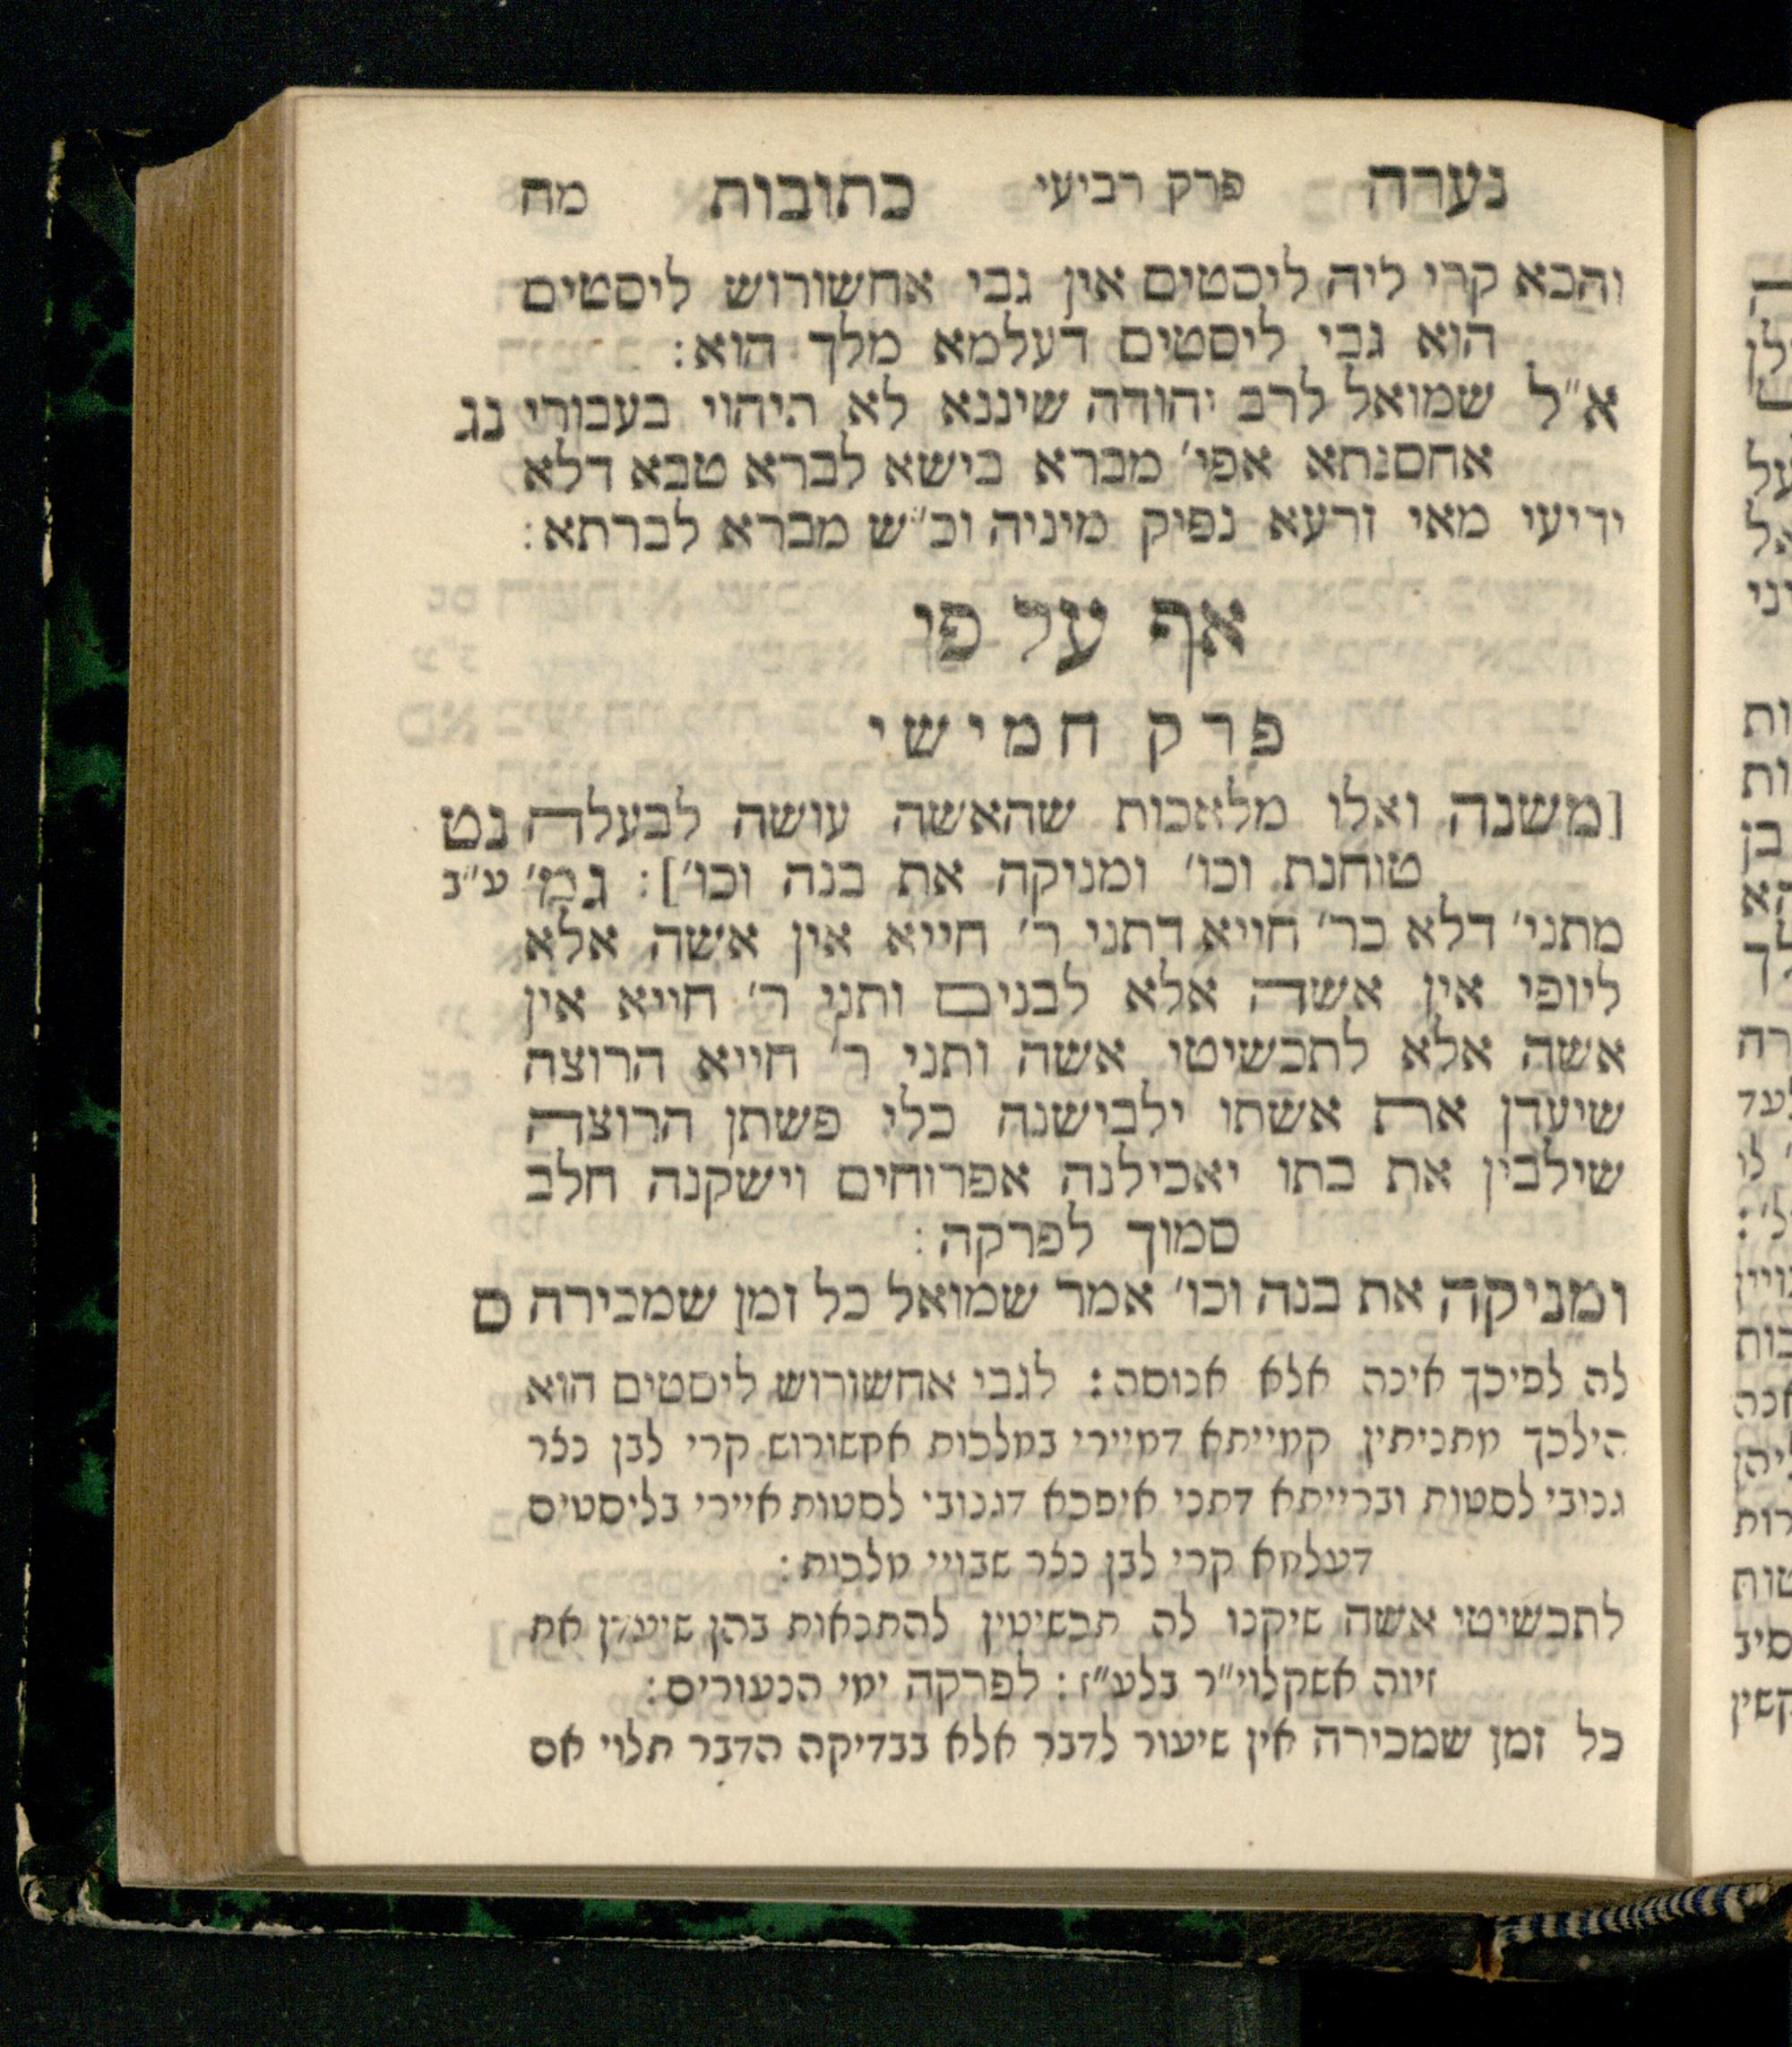 נערה פרק רביעי כתובות מח
והכא קרי ליה ליסטים אין גבי אחשורוש ליסטים
הוא גבי ליסטים דעלמא מלך הוא:
א"ל שמואל לרב יהודה שיננא לא תיהוי בעבורי נג
אחסנתא אפי' מברא בישא לברא טבא דלא
ידיעי מאי זרעא נפיק מיניה וכ"ש מברא לברתא:
אף על פי
פרק חמישי
[משנה ואלו מלאכות שהאשה עושה לבעלה נט
טוחנת וכו' ומניקה את בנה וכו']: גמ' ע"ב
מתני' דלא כר' חייא דתני ר' חייא אין אשה אלא
ליופי אין אשה אלא לבנים ותני ר' חייא אין
אשה אלא לתכשיטי אשה ותני ר' חייא הרוצה
שיעדן את אשתו ילבישנה כלי פשתן הרוצה
שילבין את בתו יאכילנה אפרוחים וישקנה חלב
סמוך לפרקה:
ומניקה את בנה וכו' אמר שמואל כל זמן שמכירה ס
לה לפיכך אינה אלא אנוסה: לגבי אחשורוש ליסטים הוא
הילכך מתניתין קמייתא דמיירי במלכות אחשורוש קרי לבן נצר
גנובי לסטות וברייתא דתני איפכא דגנובי לסטות איירי בליסטים
דעלמא קרי לבן נצר שבויי מלכות:
לתכשיטי אשה שיקנו לה תכשיטין להתנאות בהן שיעדן את
זיוה אשקלוי"ר בלע"ז: לפרקה ימי הנעורים:
כל זמן שמכירה אין שיעור לדבר אלא בבדיקה הדבר תלוי אם